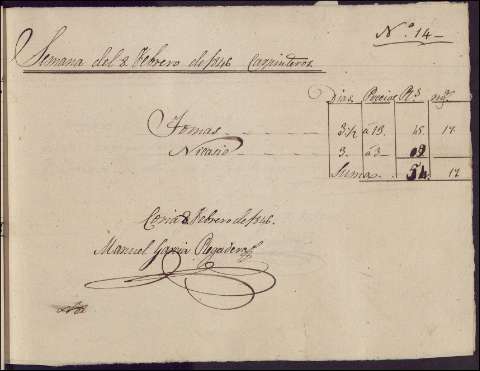 Nº 14
Semana del 8 Febrero de 1846 Carpinteros
Dias Precios Rs mrs
Tomas 3½ á 13 45 17
Nicasio 3 á 3 09
Suman 54 17
Coria 8 Febrero de 1846.
Manuel Garcia